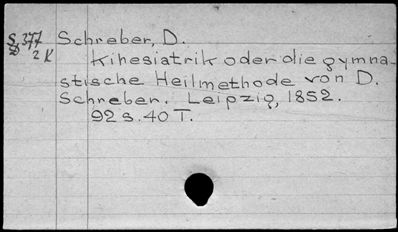 377 Schreber, D.
2 K Kinesiatrik oder die gymna-
stische Heilmethode von D.
Schreber. Leipzig, 1852.
92 s. 40 T.